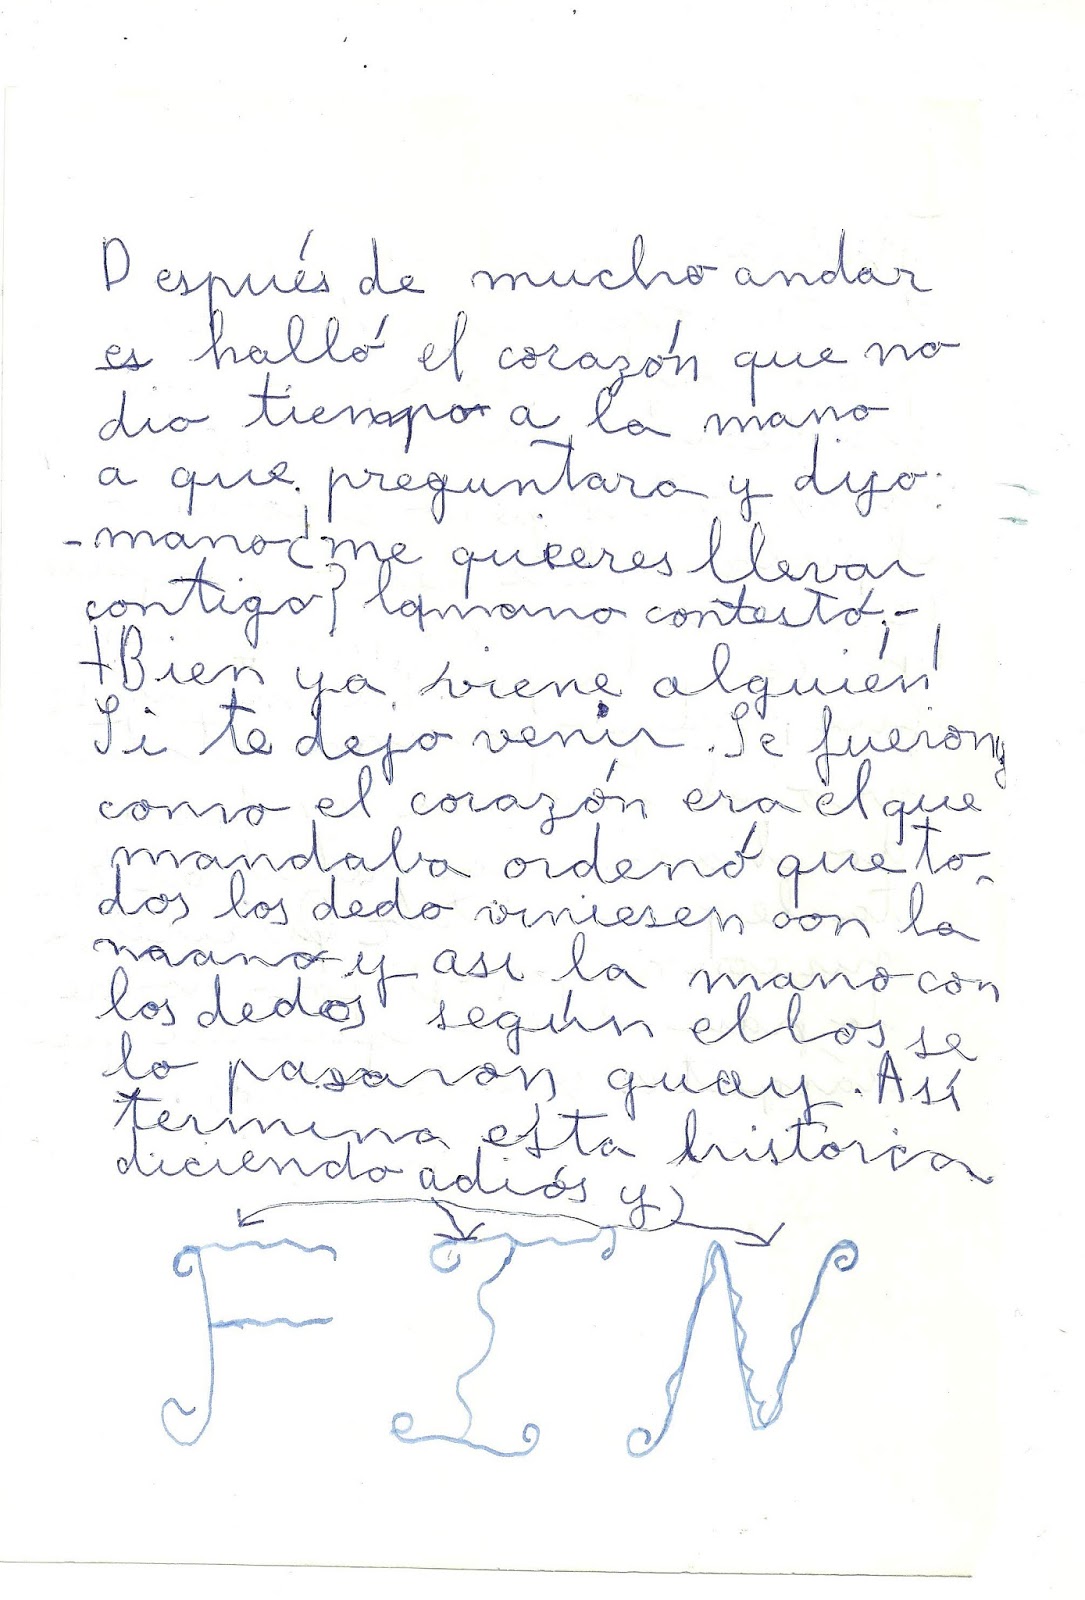 Después de mucho andar
es halló el corazón que no
dio tiempo a la mano
a que preguntara y dijo:
-mano ¿me quieres llevar
contigo? la mano contestó.-
¡Bien ya viene alguién!
Si te dejo venir. Se fueron y
como el corazón era el que
mandaba ordenó que to-
dos los dedo viniesen con la
maano y asi la mano con
los dedos según ellos se
lo pasaron guay. Así
termina esta historia
diciendo adiós y
FIN